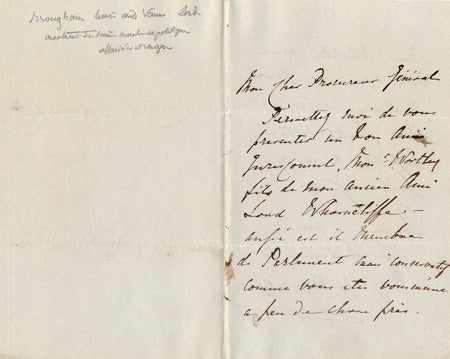 Brougham Henri and Vaux Lord
Mon Cher Procureur Général
Permettez moi de vous
presenter un bon Ami
Jurisconsul, Monr Wortley
fils de mon ancien Ami
Lord Wharncliffe –
aussi est il Membre
de Parlement mais conservatif
comme vous etes vous même
a peu de chose près.